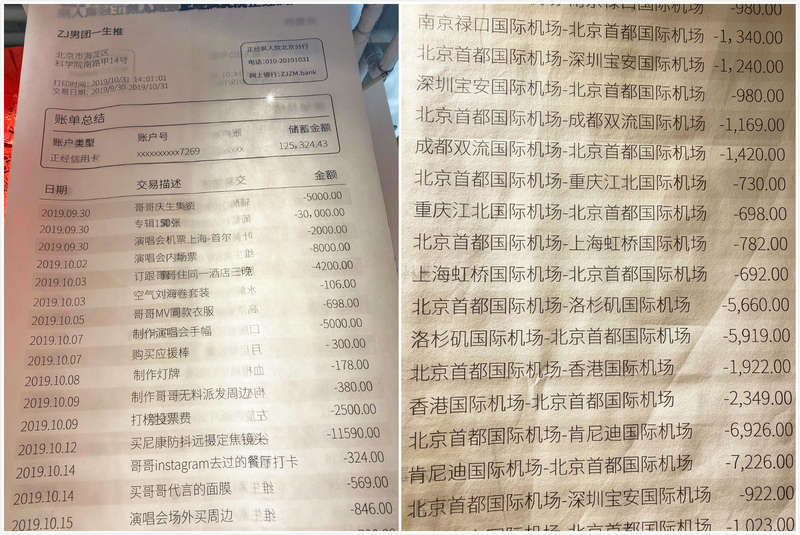 ZJ男团一生推
北京市海淀区
科学院南路甲14号
打印时间: 2019/10/31 14:01:01
交易日期: 2019/9/30-2019/10/31
正经私人院北京分行
电话:010-20191031
网上银行:ZJZM.bank
账单总结
账户类型 账户号 储蓄金额
正经信用卡 xxxxxxxxxx7269 125,324.43
日期 交易描述 金额
2019.09.30 哥哥庆生集资 -5000.00
2019.09.30 专辑150张 -30,000.00
2019.09.30 演唱会机票上海-首尔 -2000.00
2019.10.02 演唱会内场票 -8000.00
2019.10.03 订跟哥哥住同一酒店三晚 -4200.00
2019.10.03 空气刘海卷套装 -106.00
2019.10.05 哥哥MV同款衣服 -698.00
2019.10.07 制作演唱会手幅 -5000.00
2019.10.07 购买应援棒 -300.00
2019.10.08 制作灯牌 -178.00
2019.10.09 制作哥哥无料派发周边 -380.00
2019.10.09 打榜投票费 -2500.00
2019.10.12 买尼康防抖远摄定焦镜头 -11590.00
2019.10.14 哥哥instagram去过的餐厅打卡 -324.00
2019.10.14 买哥哥代言的面膜 -569.00
2019.10.15 演唱会场外买周边 -846.00
-980.00
南京禄口国际机场-北京首都国际机场 -1,340.00
北京首都国际机场-深圳宝安国际机场 -1,240.00
深圳宝安国际机场-北京首都国际机场 -980.00
北京首都国际机场-成都双流国际机场 -1,169.00
成都双流国际机场-北京首都国际机场 -1,420.00
北京首都国际机场-重庆江北国际机场 -730.00
重庆江北国际机场-北京首都国际机场 -698.00
北京首都国际机场-上海虹桥国际机场 -782.00
上海虹桥国际机场-北京首都国际机场 -692.00
北京首都国际机场-洛杉矶国际机场 -5,660.00
洛杉矶国际机场-北京首都国际机场 -5,919.00
北京首都国际机场-香港国际机场 -1,922.00
香港国际机场-北京首都国际机场 -2,349.00
北京首都国际机场-肯尼迪国际机场 -6,926.00
肯尼迪国际机场-北京首都国际机场 -7,226.00
北京首都国际机场-深圳宝安国际机场 -922.00
-1,023.00